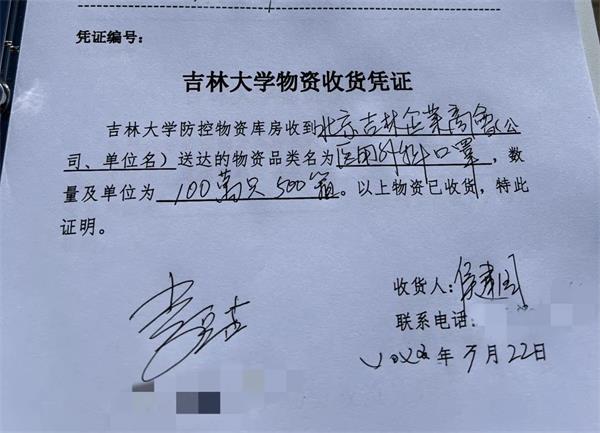 凭证编号：
吉林大学物资收货凭证
吉林大学防控物资库房收到北京吉林企業商會（公
司、单位名）送达的物资品类名为医用外科口罩，数
量及单位为100萬只 500箱。以上物资已收货，特此
证明。
收货人：侯建国
联系电话：
2022年3月22日